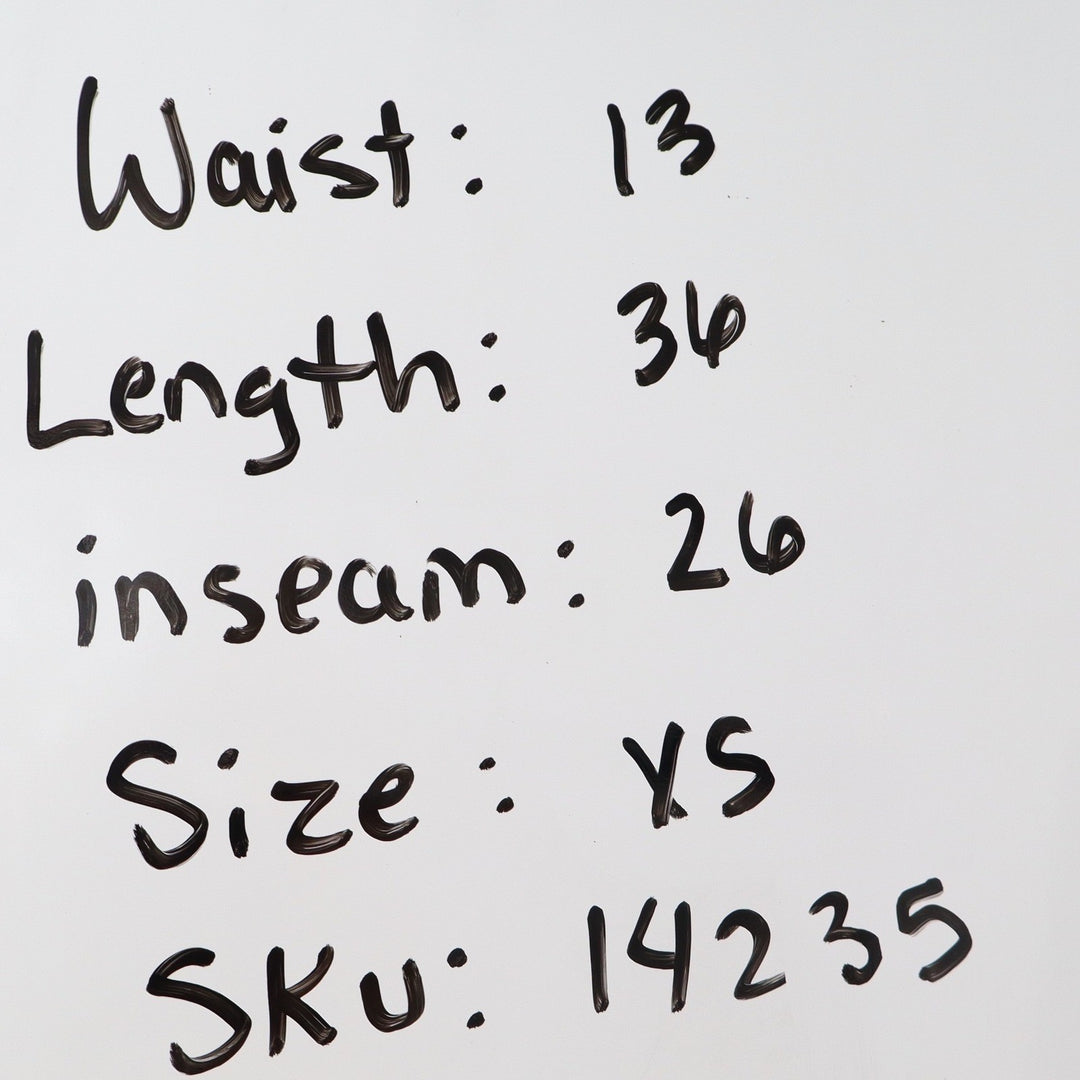 Waist: 13
Length: 36
inseam: 26
Size: XS
SKU: 14235